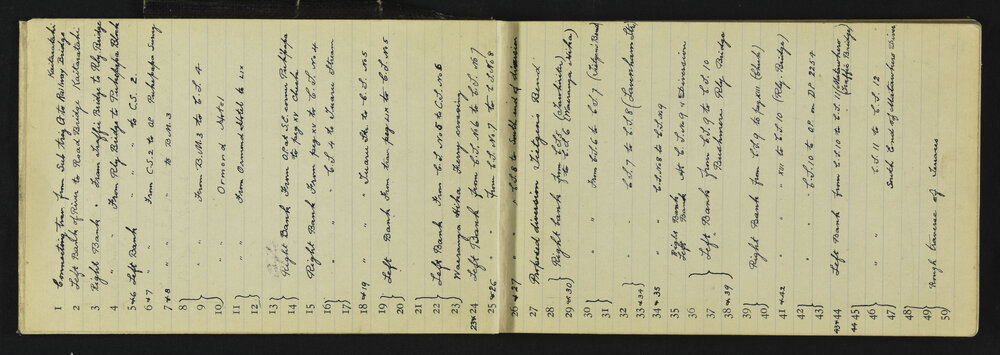 1 Connecting trav. from Sub trig A to Railway Bridge Kaitaratahi
2 Left Bank of River to Road Bridge Kaitaratahi
3 Right Bank " From Traffic Bridge to Rly Bridge
4 " " From Rly Bridge to Pukepapa Block
5 & 6 Left Bank " " to C.S. 2.
6 & 7 " " From C.S. 2 to OP Pukepapa Survey
7 & 8 " " " to B.M. 3
8
9 " " From B.M. 3 to C.S. 4
10 Ormond Hotel
11 " " From Ormond Hotel to LIX
12
13
14 Right Bank From OP at S.E. corner Pukepapa to peg XV Check
15 Right Bank From peg XV to C.S. No 4
16 " " C.S. 4 to Iwaru Stream
17
18 & 19 " " Iwaru Str. to C.S. No 5
19 Left Bank From trav peg LIX to C.S. No 5
20
21
22 Left Bank From C.S. No 5 to C.S. No 6
23 Waerenga Hika Ferry crossing
23 & 24 Left Bank from C.S. No 6 to C.S. No 7
25 & 26 " " from C.S. No 7 to C.S. No 8
26 & 27 " " C.S. 8 to South end of diversion
27 Proposed diversion Tietjen's Bend
28
29 & 30 Right bank from C.S. 5 to C.S. 6 (Waerenga Hika)
30 " " From C.S. 6 to C.S. 7 (Tietjens Bend)
31
32 " " C.S. 7 to C.S. 8 (Lavenham Stn)
33 & 34
34 & 35 " " C.S. No 8 to C.S. No 9
35 Right Bank Left Bank At C.S. No 9 & Diversion
36
37 Left Bank from C.S. 9 to C.S. 10
38 & 39 Bushmere Rly Bridge
39 Right Bank from C.S. 9 to peg XIII (Check)
40
41 & 42 " " XIII to C.S. 10 (Rly. Bridge)
42 " " C.S. 10 to OP. on DP 2254
43
43 & 44 Left Bank from C.S. 10 to C.S. 11 (Matawhero Traffic Bridge)
44 45
46 " " C.S. 11 to C.S. 12
47 South End of Matawhero Divn
48
49 Rough traverse of Iwarus
50